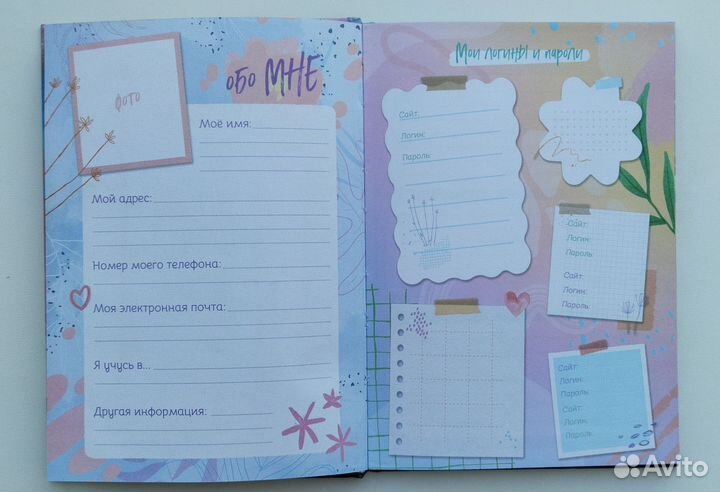 обо МНЕ
ФОТО
Моё имя:
Мой адрес:
Номер моего телефона:
Моя электронная почта:
Я учусь в...
Другая информация:
Мои логины и пароли
Сайт:
Логин:
Пароль:
Сайт:
Логин:
Пароль:
Сайт:
Логин:
Пароль:
Сайт:
Логин:
Пароль:
Сайт:
Логин:
Пароль:
Avito